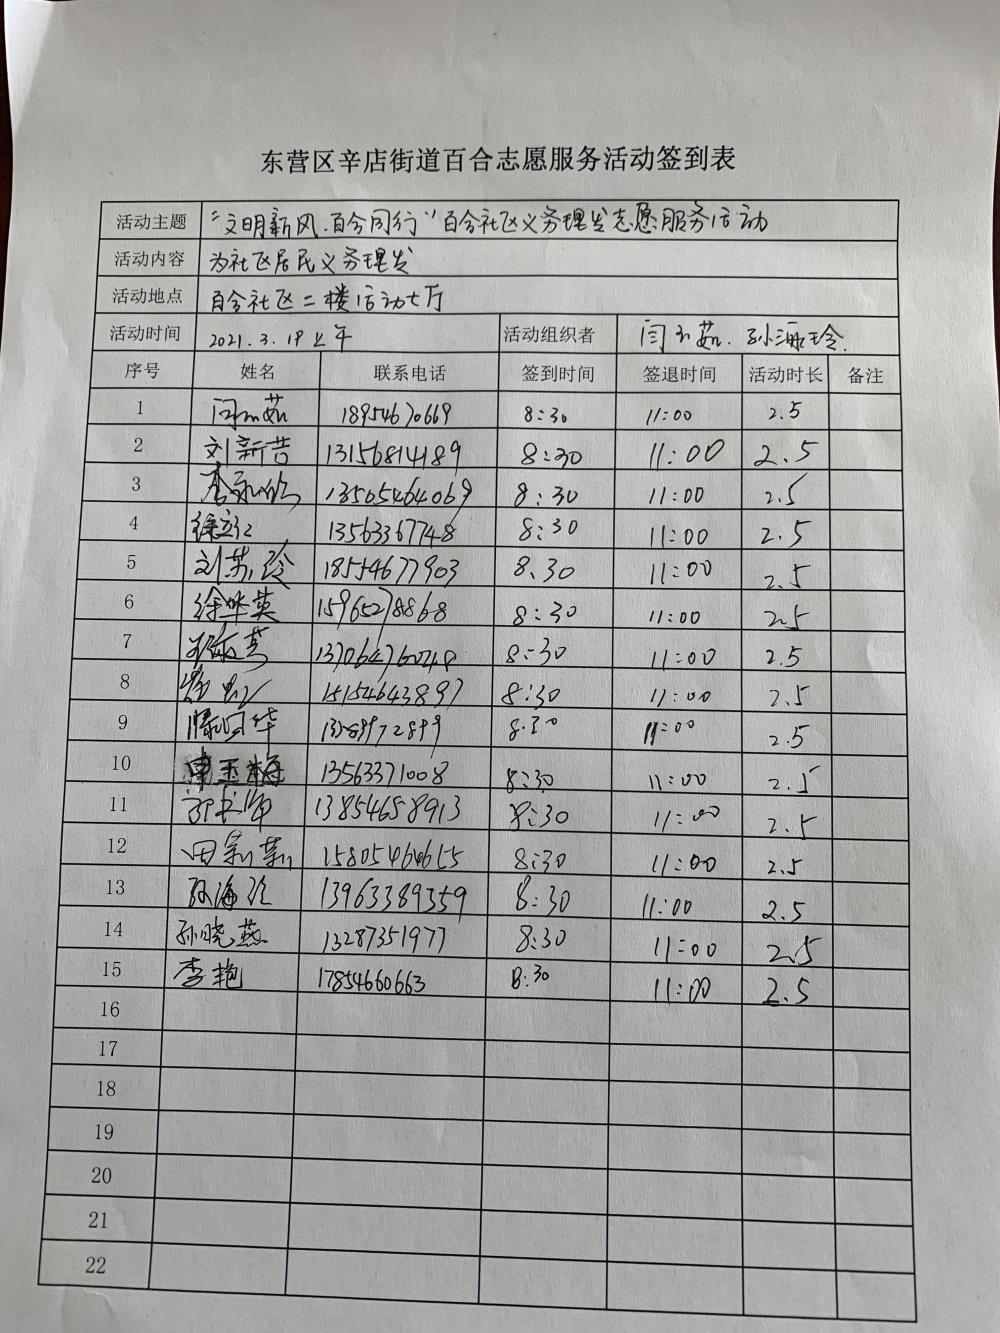 东营区辛店街道百合志愿服务活动签到表
活动主题 “文明新风.百合同行”百合社区义务理发志愿服务活动
活动内容 为社区居民义务理发
活动地点 百合社区二楼活动大厅
活动时间 2021.3.19上午 活动组织者 闫玉茹.孙海玲.
序号 姓名 联系电话 签到时间 签退时间 活动时长 备注
1 闫玉茹 18954670669 8:30 11:00 2.5
2 刘新苦 13156814189 8:30 11:00 2.5
3 13505464069 8:30 11:00 2.5
4 13563367748 8:30 11:00 2.5
5 18554677903 8.30 11:00 2.5
6 徐华英 15965278868 8:30 11:00 2.5
7 13706476048 8:30 11:00 2.5
8 15154643897 8:30 11:00 2.5
9 8:30 11:00 2.5
10 玉梅 13563371008 8:30 11:00 2.5
11 13854658913 8:30 11:00 2.5
12 田莉莉 15805464655 8:30 11:00 2.5
13 孙海玲 13963389359 8:30 11:00 2.5
14 孙晓燕 13287351977 8:30 11:00 2.5
15 李艳 17854660663 8:30 11:00 2.5
16
17
18
19
20
21
22